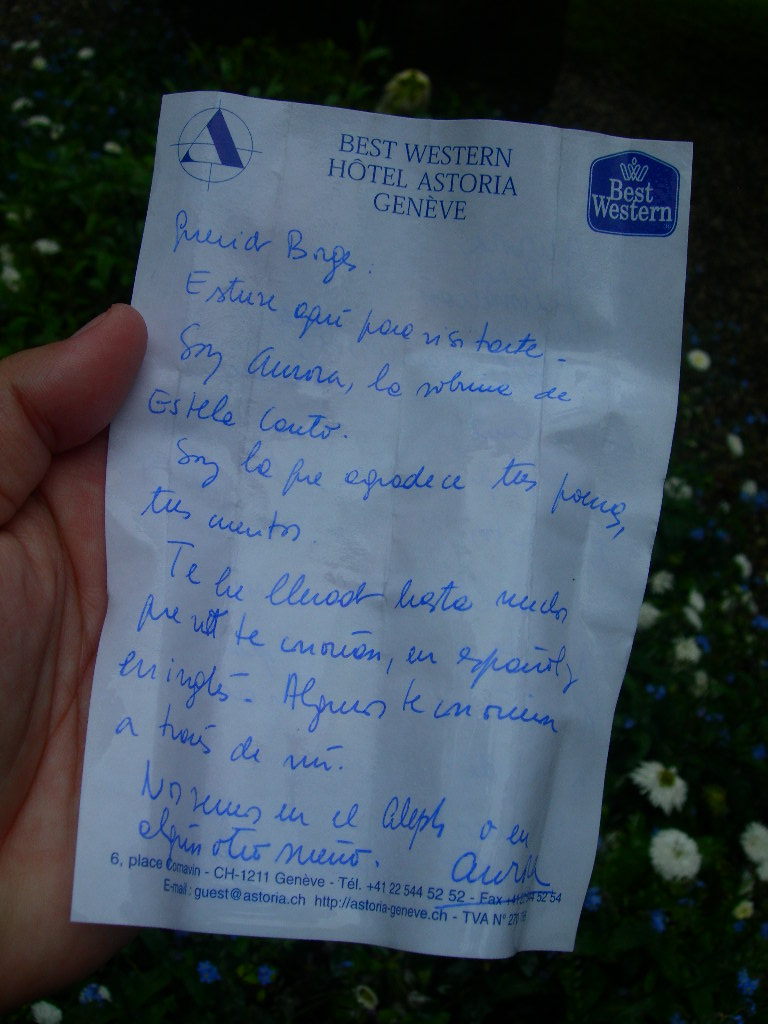 BEST WESTERN
HÔTEL ASTORIA
GENÈVE
Best
Western
Querido Borges.
Estuve aquí para visitarte.
Soy Aurora, la sobrina de
Estela Canto.
Soy la que agradece tus poemas,
tus cuentos.
Te he llevado hasta muchos
que no te conocían, en español y
en inglés. Algunos te conocieron
a través de mí.
Nos vemos en el Aleph o en
algún otro sueño.
Aurora
6, place Cornavin - CH-1211 Genève - Tél. +41 22 544 52 52 - Fax +41 22 544 52 54
E-mail : guest@astoria.ch http://astoria-geneve.ch - TVA N°